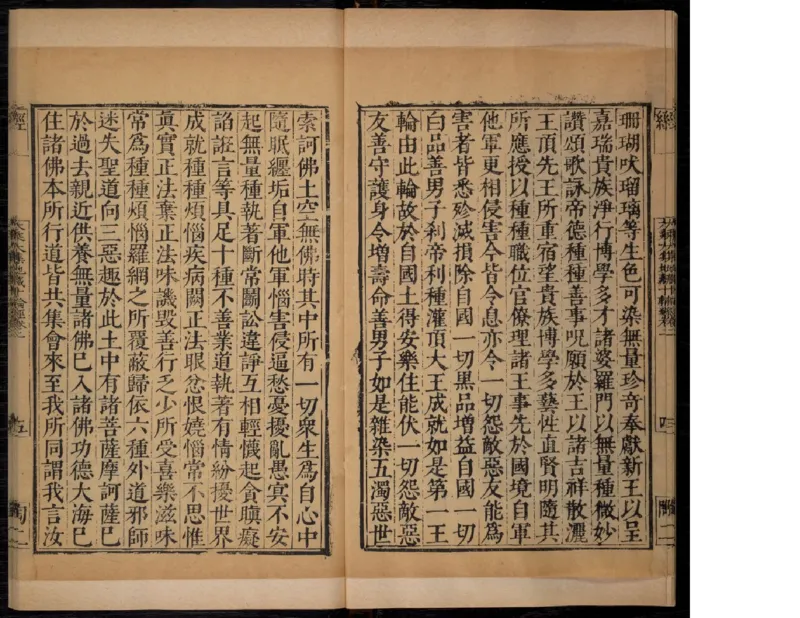 珊瑚吠瑠璃等生色可染無量珍奇奉獻新王以呈
嘉瑞貴族淨行博學多才諸婆羅門以無量種微妙
讚頌歌詠帝德種種善事呪願於王以諸吉祥散灑
王頂先王所重宿望貴族博學多藝性直賢明隨其
所應授以種種職位官僚理諸王事先於國境自軍
他軍更相侵害今皆令息亦令一切怨敵惡友能爲
害者皆悉殄滅損除自國一切黑品增益自國一切
白品善男子剎帝利種灌頂大王成就如是第一王
輪由此輪故於自國土得安樂住能伏一切怨敵惡
友善守護身令增壽命善男子如是雜染五濁惡世
經
四
索訶佛土空無佛時其中所有一切衆生爲自心中
隨眠纏垢自軍他軍惱害侵逼愁憂擾亂愚冥不安
起無量種執著斷常鬭訟違諍互相輕懱起貪瞋癡
諂誑妄言等具足十種不善業道執著有情紛擾世界
成就種種煩惱疾病闕正法眼忿恨嬈惱常不思惟
眞實正法棄正法味譏毀善行乏少所受喜樂滋味
常爲種種煩惱羅網之所覆蔽歸依六種外道邪師
迷失聖道向三惡趣於此土中有諸菩薩摩訶薩已
於過去親近供養無量諸佛已入諸佛功德大海已
住諸佛本所行道皆共集會來至我所同謂我言汝
經
五